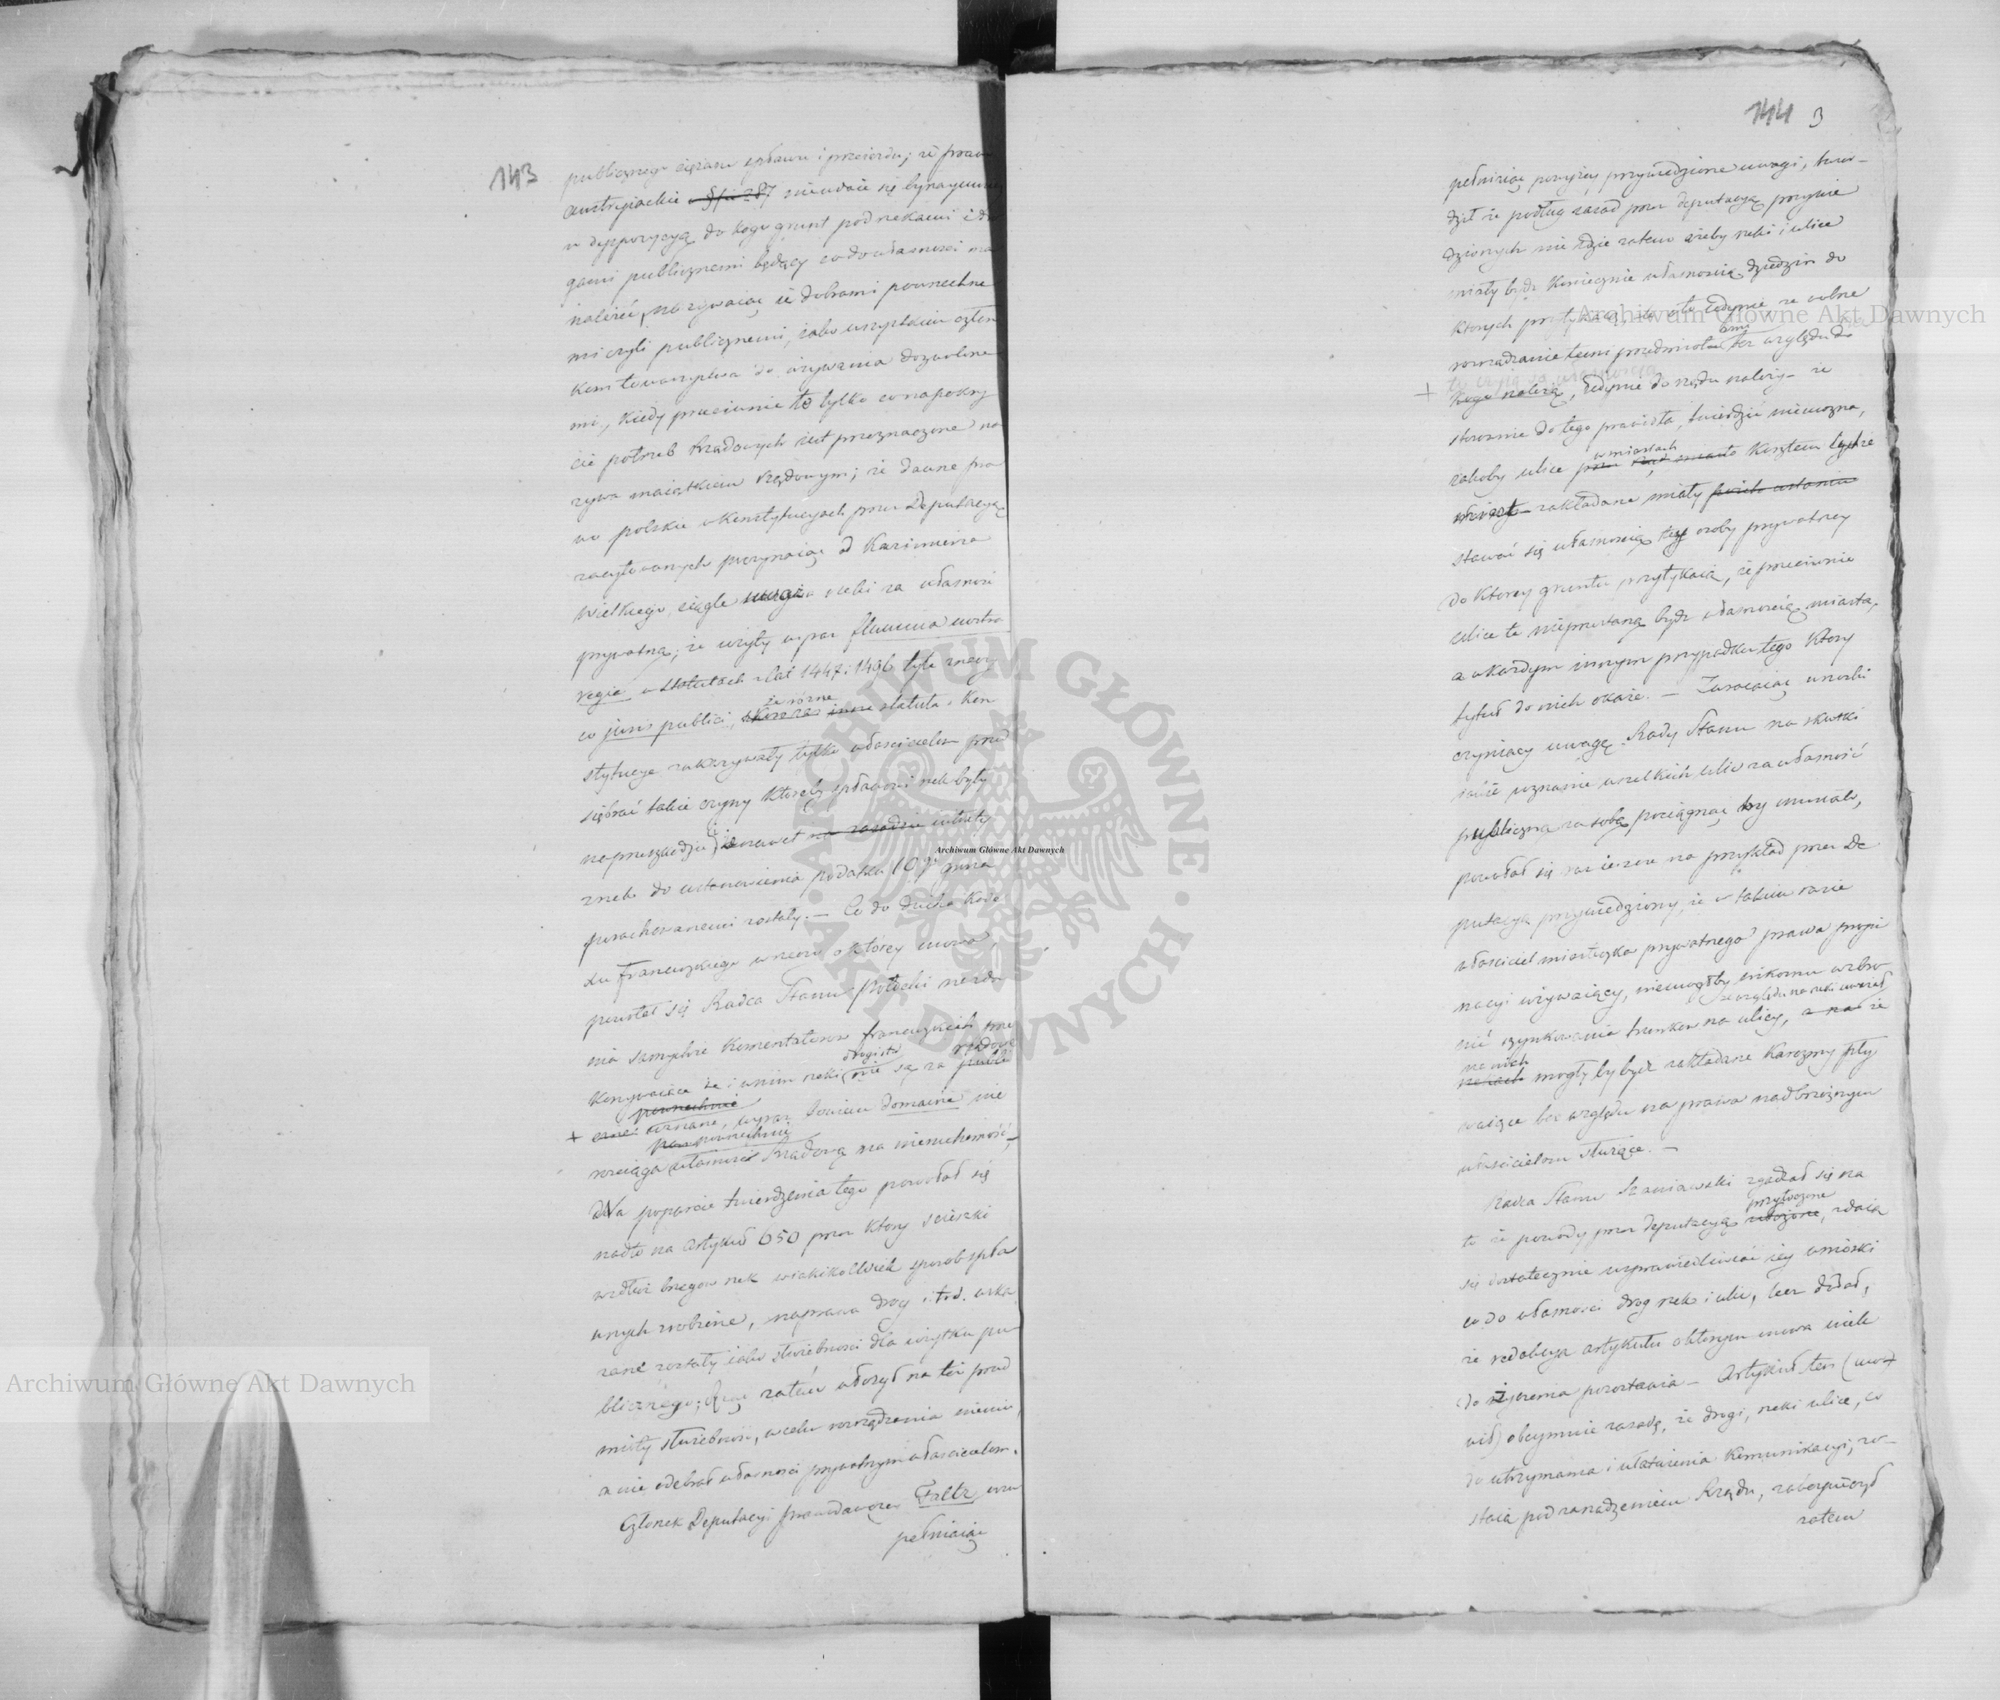 143
publicznego ciężaru spławu i przeiazdu; że prawo
austryiackie § 287 nieudaie się bynaymniey
w dyspozycyą do kogo grunt pod rzekami i dro
gami publicznemi będący co do własności ma
należeć, nazywaiąc ie dobrami powszechne
mi czyli publicznemi, iako wszystkim człon
kom towarzystwa do używania dozwolone
mi, kiedy przeciwnie to tylko co na pokry
cie potrzeb Rządowych iest przeznaczone na
zywa maiątkiem Rządowym; że dawne pra
wo polskie w Konstytucyach przez Deputacyą
zacytowanych poczynaiąc od Kazimierza
Wielkiego, ciągle uważa rzeki za własność
prywatną; że użyty wyraz flumina nostra
regia w statutach z lat 1447 i 1496 tyle znaczy
co juris publici, że różne statuta i Kon
stytucye zakazywały tylko właścicielom przed
siębrać takie czyny któreby spławowi rzek były
na przeszkodzie, że nawet
rzek do ustanowienia podatku
porachowanemi zostały. — Co do ducha Kode
xu francuzkiego w rzeczy o którey mowa,
powołał się Radca Stanu Potocki na zda
nia samychże Komentatorów francuzkich prze
konywaiące że i w nim rzeki drogi etc nie są za rządowe
+ uznane, wyraz Sowieu domaine nie
powszechnie
rozciąga własność Rządową na nieruchomość,
Na poparcie twierdzenia tego powołał się
nadto na artykuł 650 przez który scieszki
wzdłuż brzegów rzek w iakikolwiek sposób spła
wnych zrobione, naprawa dróg i t.d. uzna
zane zostały iako służebności dla użytku pu
blicznego; Rząd zatem włożył na też przed
mioty służebność, w celu rozrządzenia niemi,
a nie odebrał własności prywatnym właścicielom.
Członek Deputacyi prawodawczey Faltz uzu
pełniaiąc
144 3
pełniaiąc powyżey przywiedzione uwagi, twier-
dził że podług zasad przez deputacyą przywie
dzionych nie idzie zatem ażeby rzeki i ulice
miały bydź koniecznie własnością dziedzin do
których przytykaią, ale idzie iedynie że wolne
rozrządzanie temi przedmiotami bez względu do
+ kogo należą, iedynie do rządu należy — że
stosownie do tego prawidła, twierdzić niemożna,
żakoby ulice w miastach kosztem tychże
miast zakładane miały
stawać się własnością tey osoby prywatney
do którey gruntu przytykaią, że przeciwnie
ulice te nieprzestaną bydź własnością miasta,
a w każdym innym przypadku tego który
tytuł do nich okaże. — Zwracaiąc wreszcie
czyniący uwagę Rady Stanu na skutki
iakie uznanie wszelkich ulic za własność
publiczną za sobą pociągnąć by musiało,
powołał się raz ieszcze na przykład przez De
putacyą przywiedziony, że w takim razie
właściciel miasteczka prywatnego prawa propi
nacyi używaiący, niemógłby nikomu wzbro
nić szynkowania trunków na ulicy, ze względu na rzeki zaś że
na nich mogłyby bydź zakładane karczmy pły
waiące bez względu na prawa nadbrzeżnym
właścicielom służące. —
Radca Stanu Szaniawski zgadzał się na
to że powody przez deputacyą przytoczone, zdaią
się dostatecznie usprawiedliwiać iey wnioski
co do własności dróg rzek i ulic, lecz dodał,
że redakcya artykułu o którym mowa wiele
do życzenia pozostawia — Artykuł ten (mó-
wił) obeymuie zasadę, że drogi, rzeki ulice, co
do utrzymania i ułatwienia komunikacyi, zo-
staią pod zarządzeniem Rządu, zabezpieczył
zatem
Archiwum Główne Akt Dawnych
Archiwum Główne Akt Dawnych
Archiwum Główne Akt Dawnych
ARCHIWUM GŁÓWNE · AKT DAWNYCH ·